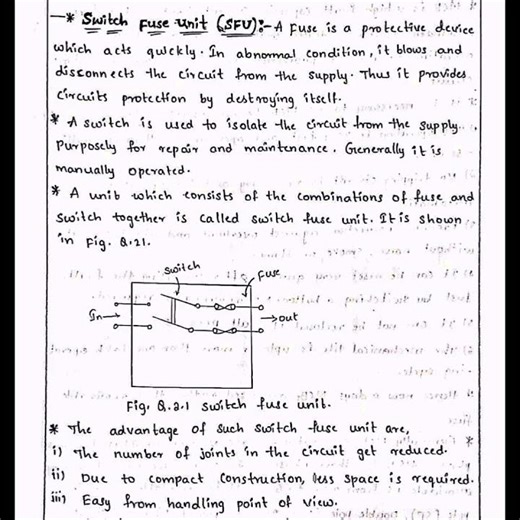 * Switch Fuse Unit (SFU):- A Fuse is a protective device
which acts quickly. In abnormal condition, it blows and
disconnects the circuit from the supply. Thus it provides
circuits protection by destroying itself.
* A switch is used to isolate the circuit from the supply.
Purposely for repair and maintenance. Generally it is
manually operated.
* A unit which consists of the combinations of fuse and
switch together is called switch fuse unit. It is shown
in Fig. Q.21.
switch
Fuse
In
out
Fig. Q.2.1 switch fuse unit.
* The advantage of such switch fuse unit are,
i) The number of joints in the circuit get reduced.
ii) Due to compact construction, less space is required.
iii) Easy from handling point of view.